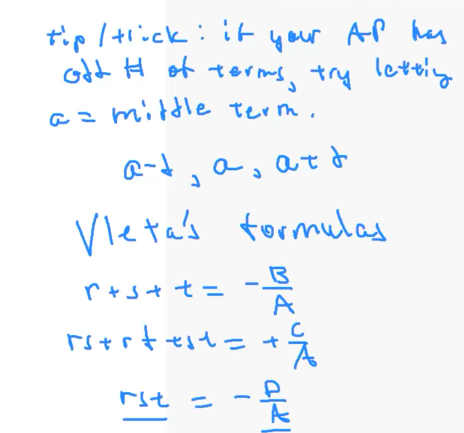 tip/trick: if your AP has
odd # of terms, try letting
a = middle term.
a-d, a, a+d
Vieta's formulas
r+s+t = -B/A
rs+rt+st = +C/A
rst = -D/A